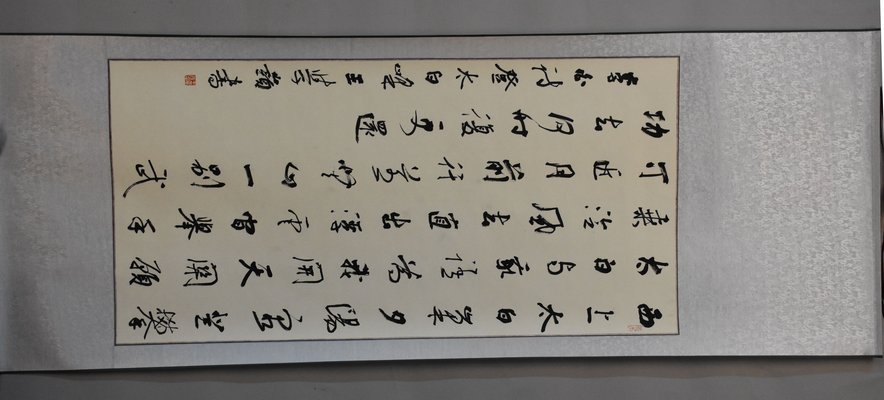 西上太白峯夕陽窮登攀
太白與我語為我開天關願
乘泠風去直出浮雲間舉手
可近月前行若無山一別武
功去何時復更還
李白詩登太白峯 王 書